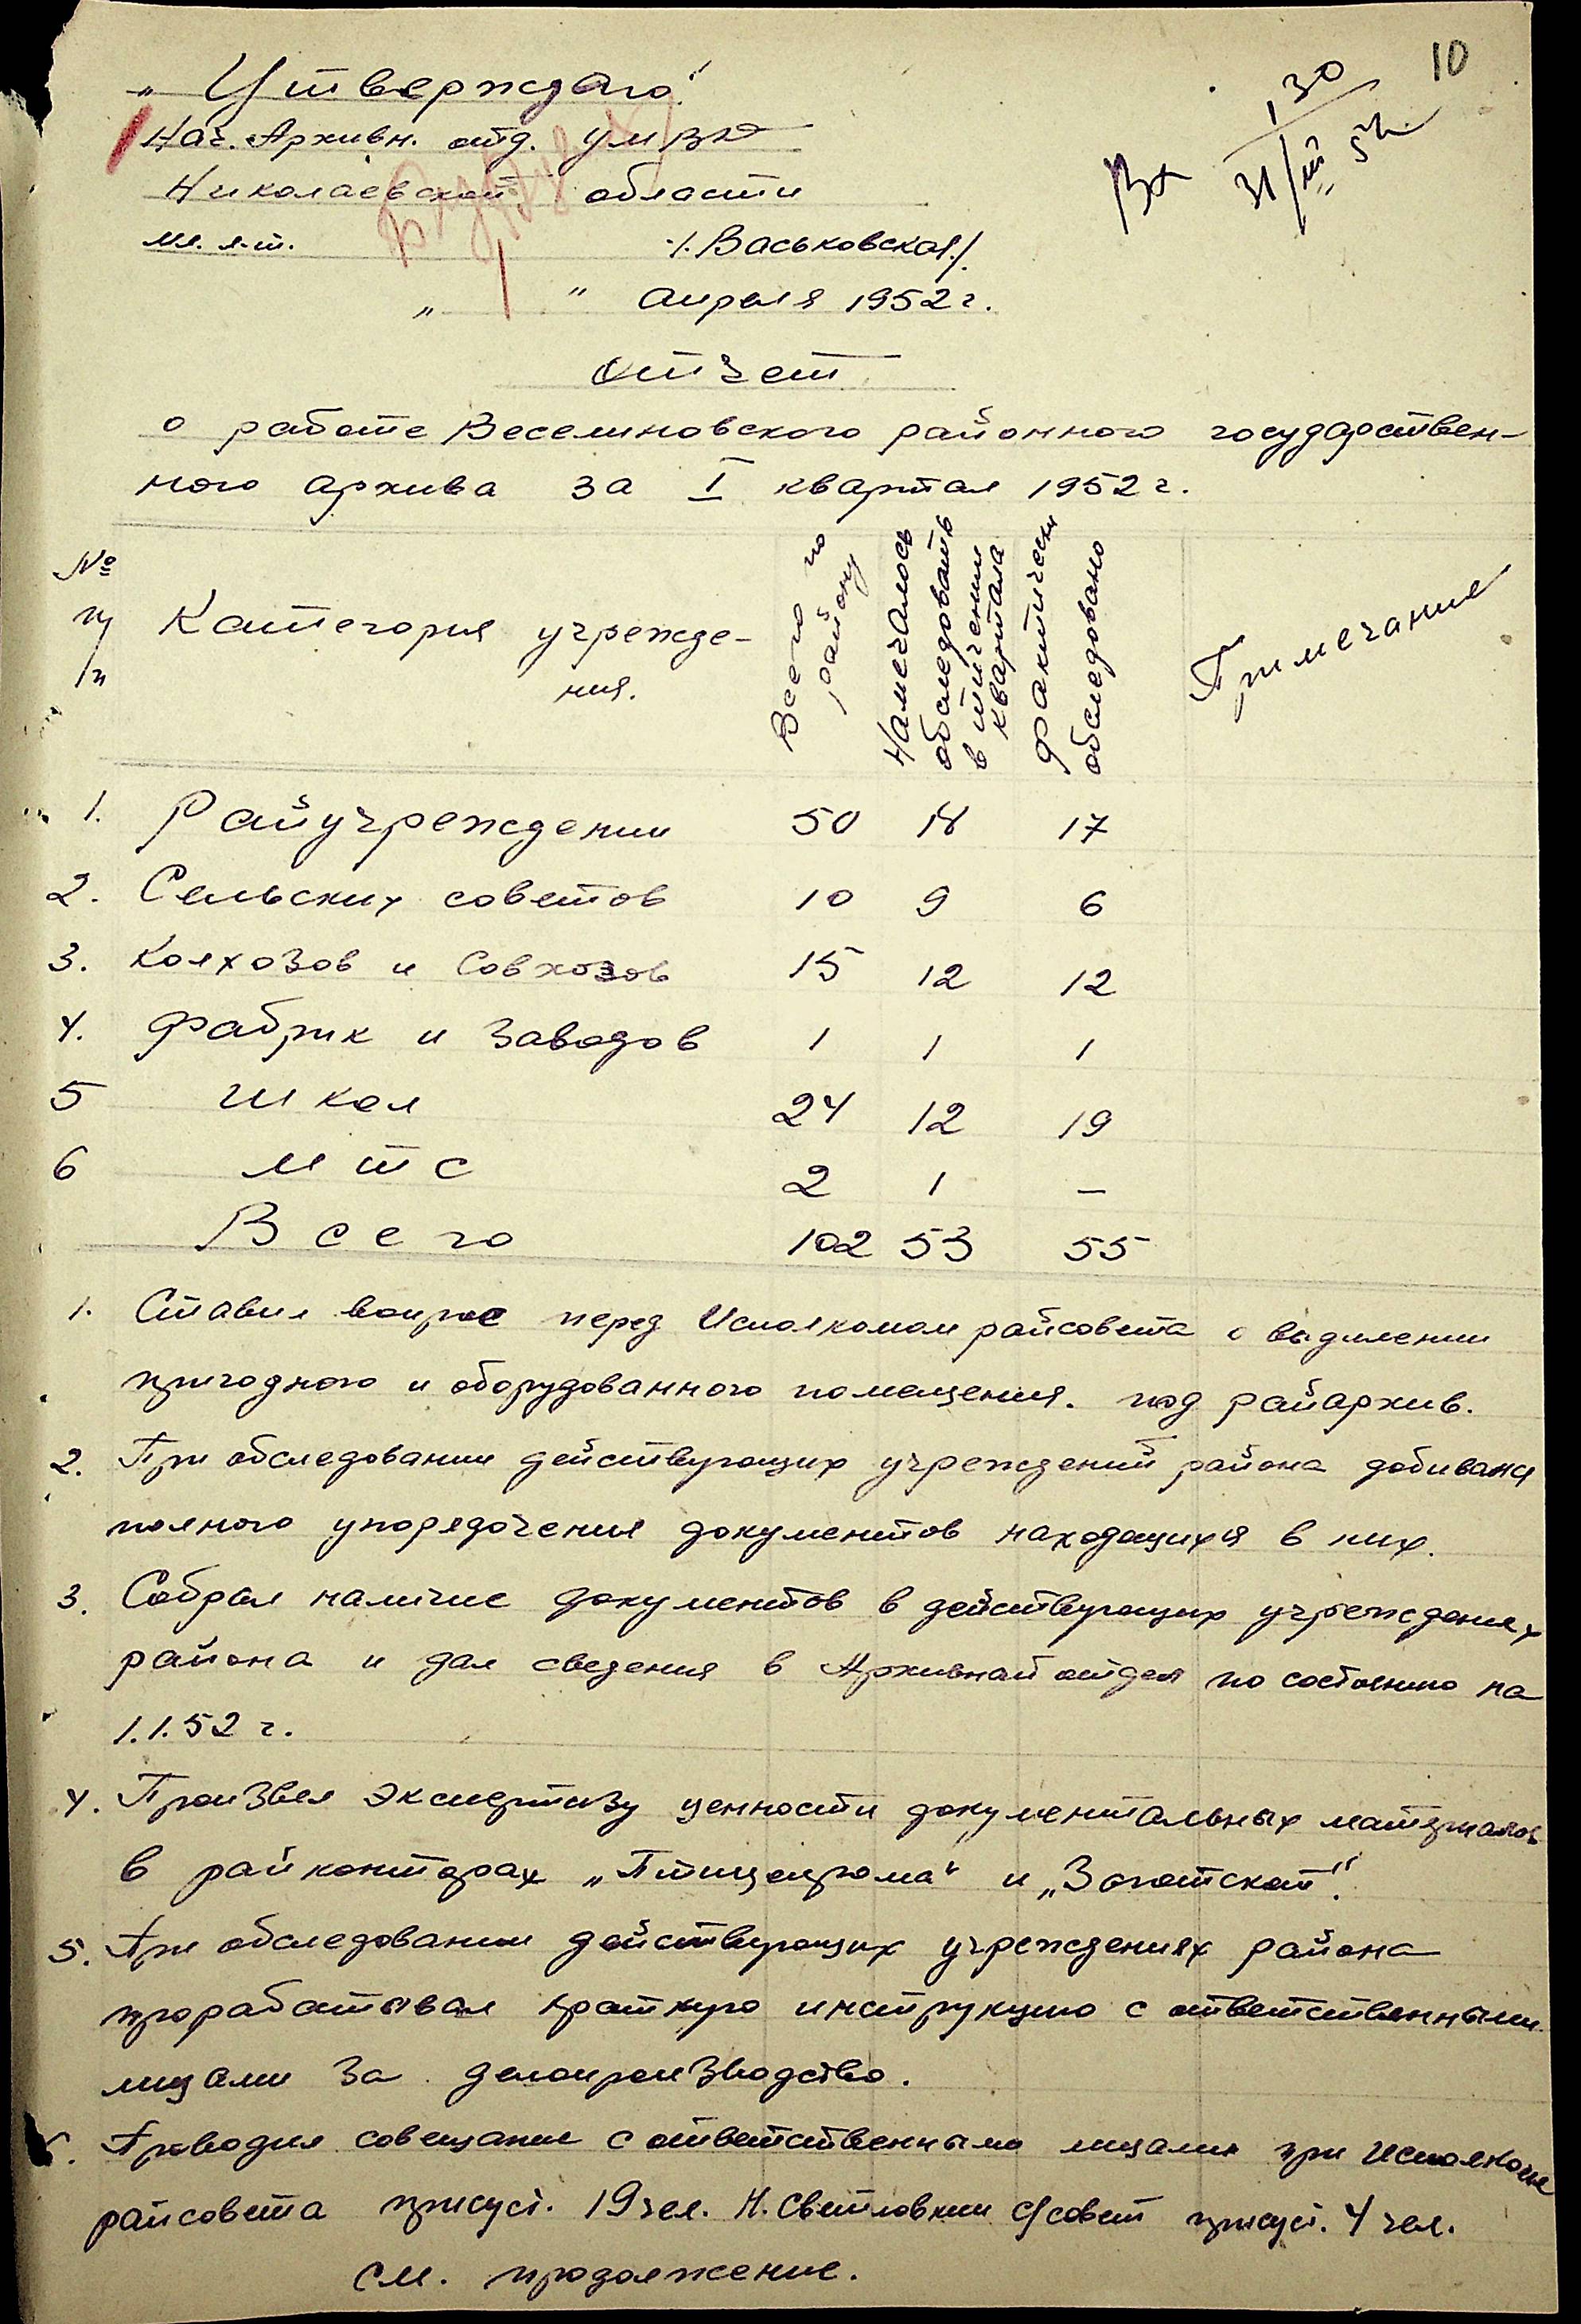 10
130
Вх 31/III 52 г.
„Утверждаю"
Нач. Архивн. отд. УМВД
Николаевской области
мл. л-т. /.Васьковская./
„ " апреля 1952 г.
Отчет
о работе Веселиновского районного государствен-
ного архива за I квартал 1952 г.
№ п/п Категория учрежде-ния. Всего по району Намечалось обследовать в тичении квартала Фактически обследовано Примечание
1. Райучреждении 50 18 17
2. Сельских советов 10 9 6
3. Колхозов и Совхозов 15 12 12
4. Фабрик и Заводов 1 1 1
5 Школ 24 12 19
6 МТС 2 1 –
Всего 102 53 55
1. Ставил вопрос перед Исполкомом райсовета о выдилении
пригодного и оборудованного помещения. под райархив.
2. При обследовании действующих учреждений района добивался
полного упорядочения документов находящихся в них.
3. Собрал наличие документов в действующих учреждениях
района и дал сведения в Архивный отдел по состоянию на
1.1.52 г.
4. Произвел экспертизу ценности документальных материалов
в райконторах „Птицепрома" и „Заготскот".
5. При обследовании действующих учреждениях района
прорабатывал краткую инструкцию с ответственными
лицами за делопроизводство.
6. Проводил совещание с ответственными лицами при Исполкоме
райсовета присут. 19 чел. Н. Светловкий с/совет присут. 4 чел.
см. продолжение.